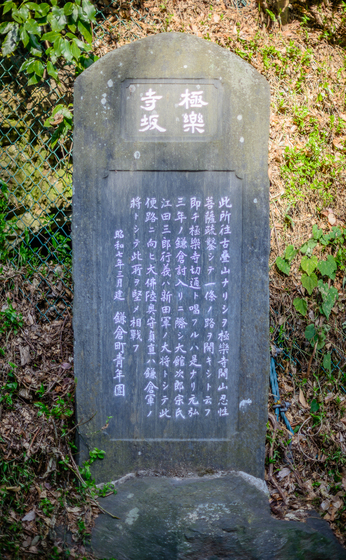 極樂
寺坂
此所往古疊山ナリシヲ極樂寺開山忍性
菩薩疏鑿シテ一條ノ路ヲ開キシト云フ
即チ極樂寺切通ト唱フルハ是ナリ元弘
三年ノ鎌倉討入リニ際シ大館次郎宗氏
江田三郎行義ハ新田軍ノ大將トシテ此
便路ニ向ヒ大佛陸奥守貞直ハ鎌倉軍ノ
將トシテ此所ヲ堅メ相戰フ
昭和七年三月建 鎌倉町青年團